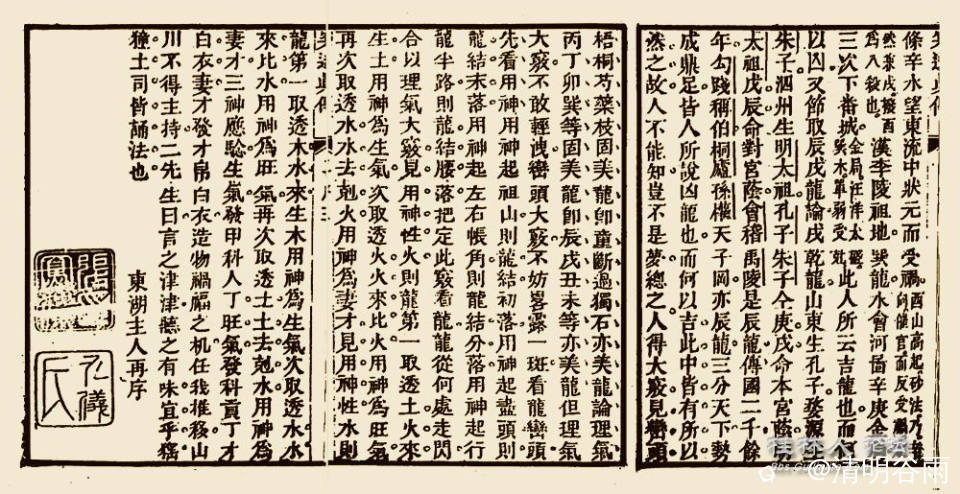 條辛水望東流中狀元而受禍酉山高起砂法乃向催官而反受禍
然乘戌酉為八殺也。漢李陵祖地巽龍水會河啚辛庚金
三次下番城金局汪洋太巽木單弱受此人所云吉龍也而何
以凶又節取辰戌龍論戌乾龍山東生孔子婺源生
朱子泗州生明太祖孔子朱子仝庚戌命本宮蔭
太祖戊辰命對宮蔭會稽禹陵是辰龍傳國二千餘
年勾踐稱伯桐廬孫權天子岡亦辰龍三分天下勢
成鼎足皆人所說凶龍也而何以吉此中皆有所以
然之故人不能知豈不是總之人得大竅見巒頭
梧桐芍藥枝固美龍卽童斷過獨石亦美龍論理氣
丙丁卯巽等固美龍卽辰戌丑未等亦美龍但理氣
大竅不敢輕洩巒頭大竅不妨畧露一斑看龍巒頭
先看用神用神起祖山則龍結初落用神起盡頭則
龍結末落用神起左右帳角則龍結分落用神起行
龍半路則龍結腰落把定此竅看龍龍從何處走閃
合以理氣大竅見用神性火則龍第一取透土火來
生土用神為生氣次取透火火來比火用神為旺氣
再次取透水水去剋火用神為妻才見用神性水則
龍第一取透木水來生木用神為生氣次取透水水
來比水用神為旺氣再次取透土土去剋水用神為
妻才三神應騐生氣發甲科人丁旺氣發科貢丁才
白衣妻才發才帛白衣造物禍福之机任我推移山
川不得主持二先生曰言之津津聽之有味宜乎猺
獞土司皆誦法也
東湖主人再序
九儀氏
@清明谷雨